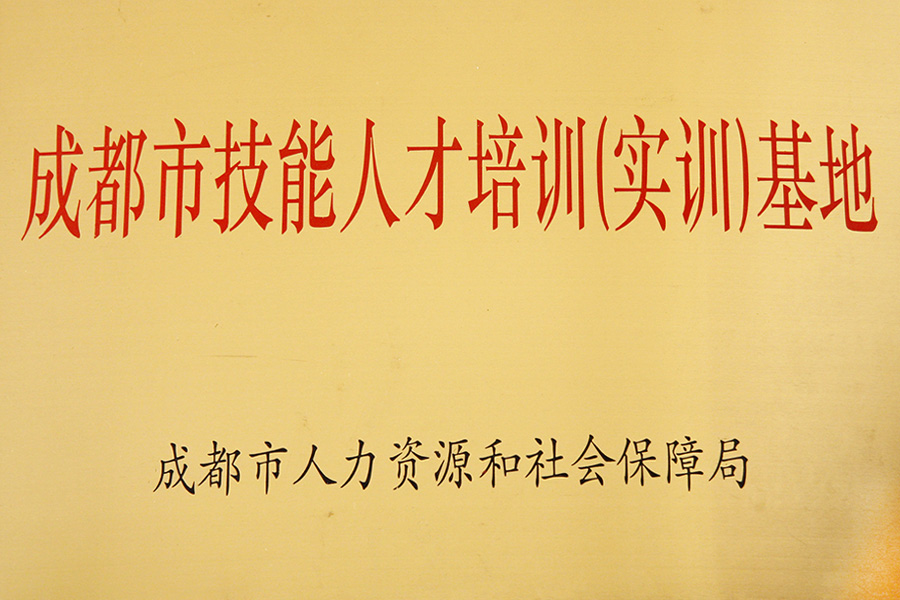 成都市技能人才培训(实训)基地
成都市人力资源和社会保障局